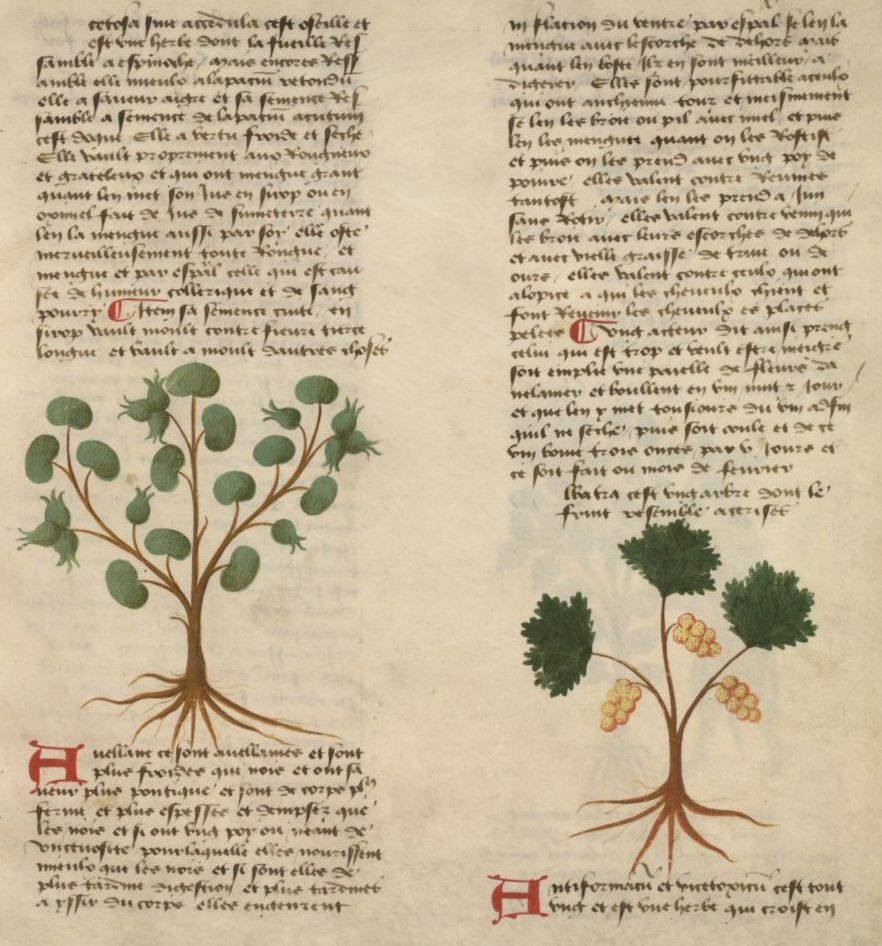 cetosa siue accedula cest oseille et
est vne herbe dont la fueille Res
samble a espinoche, mais encores Ress
amble elle mieulx a lapacium rotondu
elle a saueur aigre et sa semence Res
samble a semence de lapaciu acutum
cest doque Elle a vertu froide et seche
Elle vault proprement aux Rongneux
et grateleux et qui ont mengue grant
quant len met son Jus en sirop ou en
oximel fait de Jus de fumeterre quant
len la mengue aussi par soy elle oste
merueilleusement toute Rongne, et
mengue et par espal celle qui est cau
see de humeur collerique et de sang
pourry Item sa semence cuite, en
sirop vault moult contre fieure tierce
longue et vault a moult dautres choses
Auellane ce sont auellaines et sont
plus froides que nois et ont sa
ueur plus pontique et sont de corps pl9
ferme et plus espesses et que
les nois et si ont vng poy ou neant de
vnctuosite pour laquelle elles nourissent
mieulx que les nois et si sont elles de
plus tardiue digestion et plus tardiues
a yssir du corps elles engenrent
inflation du ventre par espal se len la
mengue auec lescorche de dehors mais
quant len loste Ilz en sont meilleur a
digerer Elles sont pourfittable a ceulx
qui ont anchienne toux et meismement
se len les broie ou pil auec miel et puis
len les mengue quant on les Rostist
et puis on les prend auec vng poy de
poiure elles valent contre Reumes
tantost mais len les prend a Jun
sans Rotir, elles valent contre venin qui
les broie auec leurs escorches de dehors
et auec vielle graisse de truie ou de
ours, elles valent contre ceulx qui ont
alopice a qui les cheueulx chient et
font Reuenir les cheueulx es places
pelees Vng acteur dit ainsi preng
celui qui est trop et veult estre meigre
soit emplie vne paielle de fleurs da
uelanier et boullent en vin nuit et Jour
et que len y met tousiours du vin adfin
quil ne seche, puis soit coule et de ce
vin boiue trois onces par v Jours et
ce soit fait ou mois de feurier
lbatra cest vng arbre dont le
fruit resemble a cerises
Antiformacu et vicetoxicu cest tout
vng et est vne herbe qui croist en